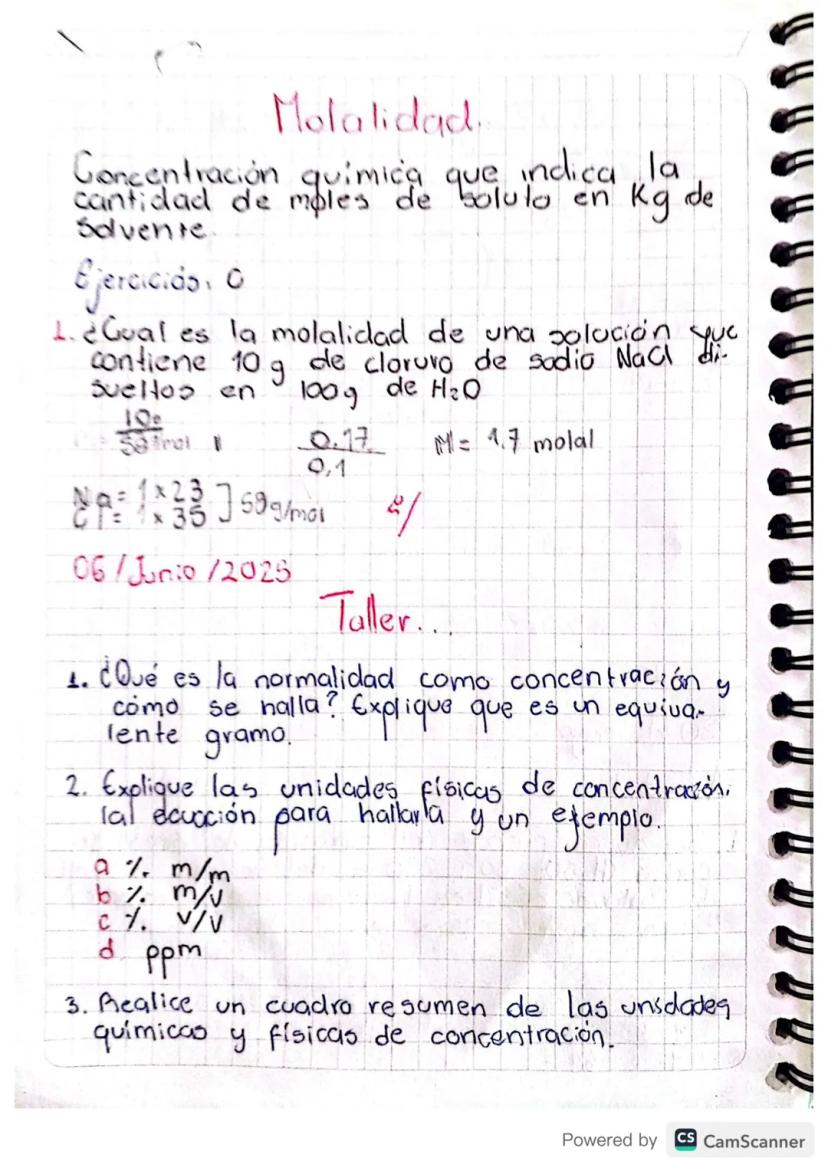 Molalidad.
Concentración química que indica la
cantidad de moles de soluto en Kg de
solvente.
Ejercicios.
1. ¿Cual es la molalidad de una solución que
contiene 10 g de cloruro de sodio NaCl di-
sueltos en 100g de H₂O
10g
58 mol
0.17
0,1
M = 1.7 molal
Na = 1 x 23
Cl = 1 x 35 ] 58g/mol
06/Junio/2025
Taller...
1. ¿Qué es la normalidad como concentración y
cómo se halla? Explique que es un equiva-
lente gramo.
2. Explique las unidades físicas de concentración.
lal ecucción para hallarla y un ejemplo.
a %. m/m
b %. m/v
c %. v/v
d ppm
3. Realice un cuadro resumen de las unsdades
químicas y físicas de concentración.
Powered by CS CamScanner